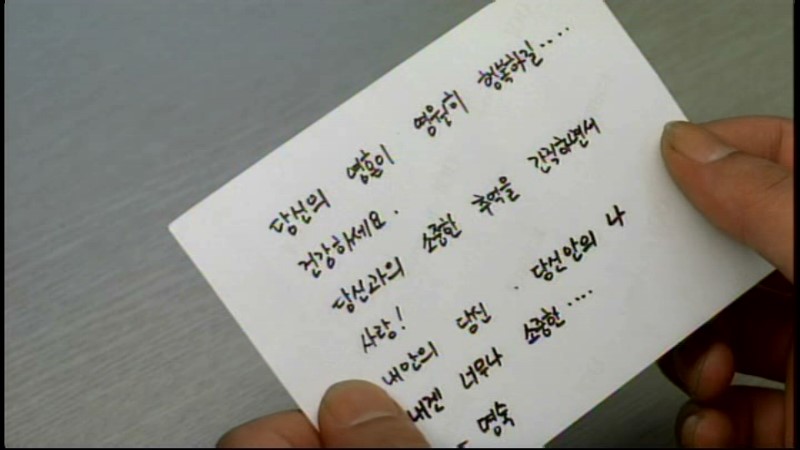 당신의 영혼이 영원히 행복하길....
건강하세요.
당신과의 소중한 추억을 간직하면서
사랑!
내안의 당신 . 당신안의 나
내겐 너무나 소중한....
영숙